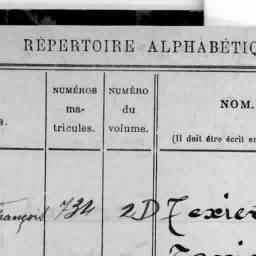 RÉPERTOIRE ALPHABÉTIQ
NUMÉROS
ma-
tricules.
NUMÉRO
du
volume.
NOM.
(Il doit être écrit e
s.
rançois 734 2D Texie